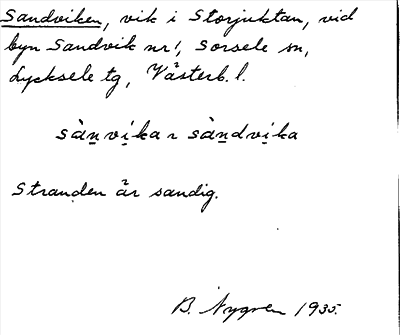 Sandviken, vik i Storjuktan, vid
byn Sandvik nr 1, Sorsele sn,
Lycksele tg, Västerb. l.
sàn̲vịka ~ sàn̲dvịka
Stranden är sandig.
B. Nygren 1935.